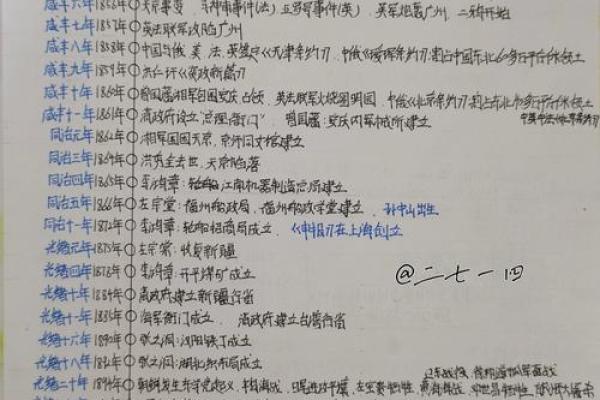 咸丰六年1856年 天京事变 马神甫事件(法) 亚罗号事件(英) 英军炮轰广州 二鸦开始
咸丰七年1857年 英法联军攻陷广州
咸丰八年1858年 中国与俄 美 法 英签定《天津条约》 中俄《瑷珲条约》割占中国东北60多万平方千米领土
咸丰九年1859年 洪仁玕《资政新篇》
咸丰十年1860年 曾国藩湘军包围安庆 英法联军火烧圆明园 中俄《北京条约》
咸丰十一年1861年 清政府设立"总理衙门" 曾国藩:安庆内军械所建立
同治元年1862年 湘军围困天京,京师同文馆建立
同治三年1864年 洪秀全去世,天京陷落
同治四年1865年 李鸿章: 江南机器制造总局建立
同治五年1866年 左宗棠:福州船政局,福州船政学堂建立 孙中山出生
同治十一年1872年 李鸿章:轮船招商局成立 《申报》在上海创立
光绪元年1875年 左宗棠:收复新疆
光绪四年1878年 李鸿章:开平煤矿成立
光绪十年1884年 清政府建立新疆行省
光绪十一年1885年 海军衙门成立 清政府建立台湾行省
光绪十六年1890年 张之洞:汉阳铁厂成立
光绪十八年 张之洞:湖北织布局成立
光绪二十年1894年 朝鲜发生东学党起义
@二七一四